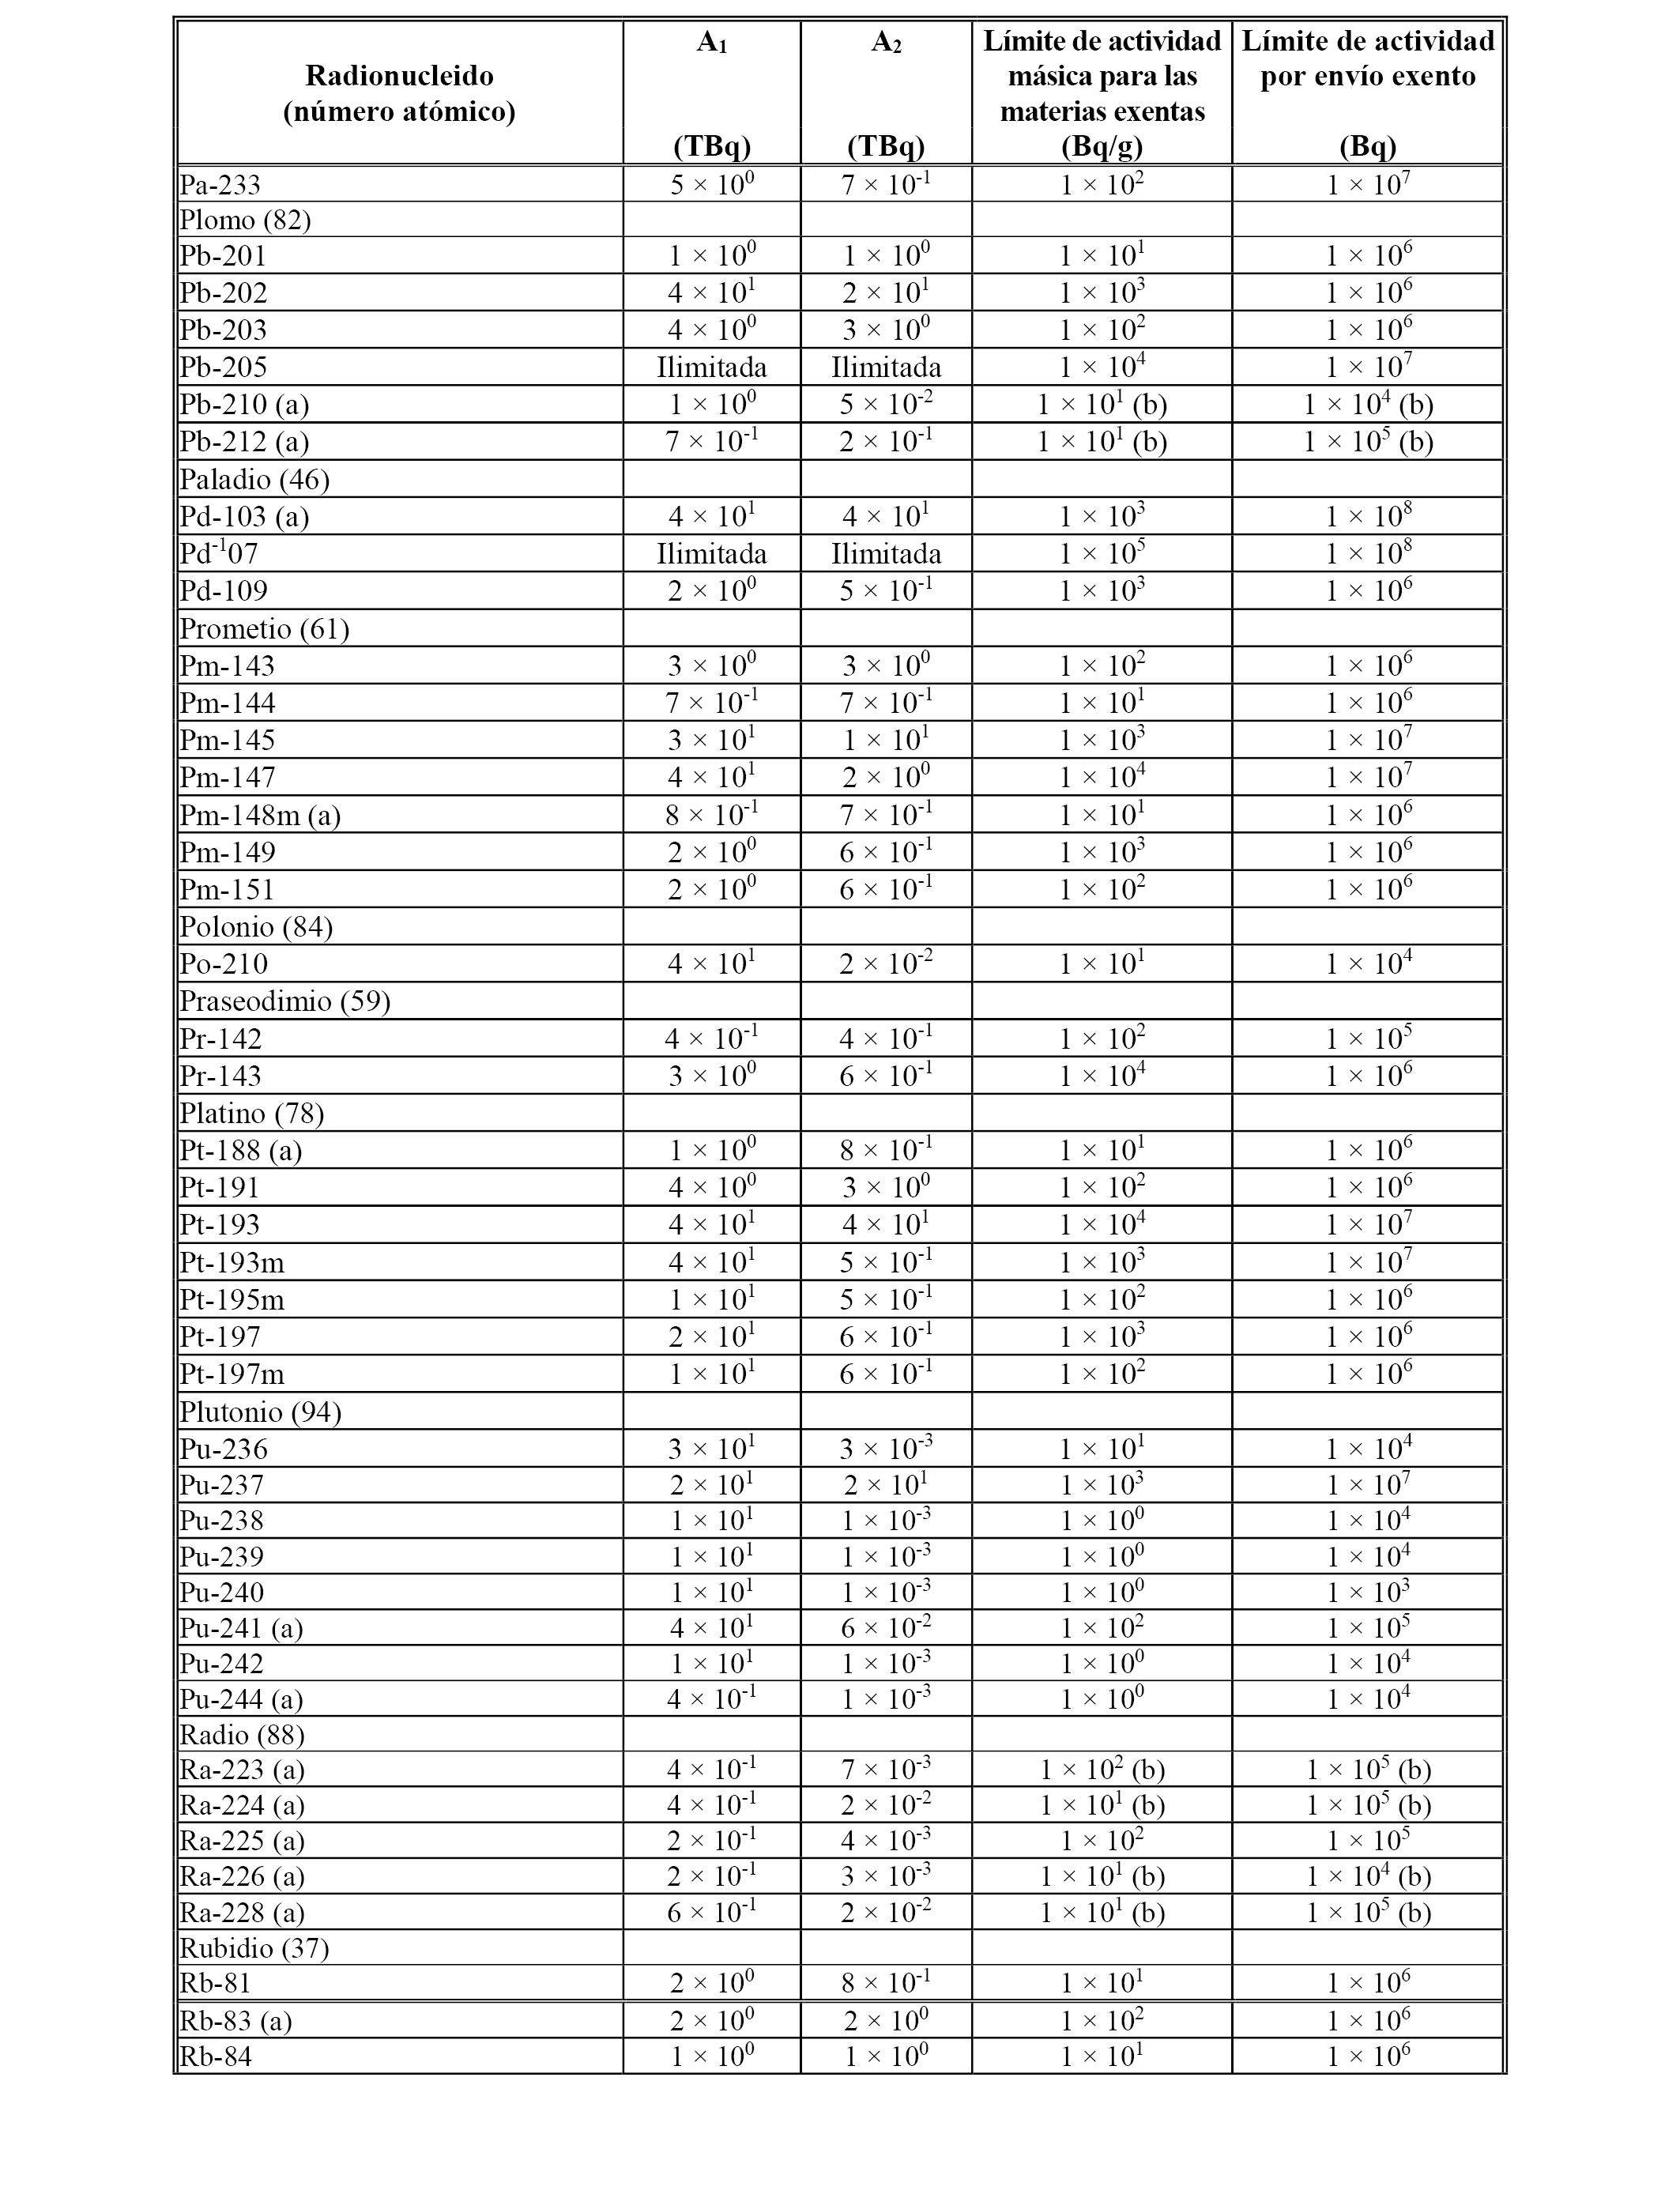 Radionucleido (número atómico) A₁ (TBq) A₂ (TBq) Límite de actividad másica para las materias exentas (Bq/g) Límite de actividad por envío exento (Bq)
Pa-233 5 × 10⁰ 7 × 10⁻¹ 1 × 10² 1 × 10⁷
Plomo (82)
Pb-201 1 × 10⁰ 1 × 10⁰ 1 × 10¹ 1 × 10⁶
Pb-202 4 × 10¹ 2 × 10¹ 1 × 10³ 1 × 10⁶
Pb-203 4 × 10⁰ 3 × 10⁰ 1 × 10² 1 × 10⁶
Pb-205 Ilimitada Ilimitada 1 × 10⁴ 1 × 10⁷
Pb-210 (a) 1 × 10⁰ 5 × 10⁻² 1 × 10¹ (b) 1 × 10⁴ (b)
Pb-212 (a) 7 × 10⁻¹ 2 × 10⁻¹ 1 × 10¹ (b) 1 × 10⁵ (b)
Paladio (46)
Pd-103 (a) 4 × 10¹ 4 × 10¹ 1 × 10³ 1 × 10⁸
Pd⁻¹07 Ilimitada Ilimitada 1 × 10⁵ 1 × 10⁸
Pd-109 2 × 10⁰ 5 × 10⁻¹ 1 × 10³ 1 × 10⁶
Prometio (61)
Pm-143 3 × 10⁰ 3 × 10⁰ 1 × 10² 1 × 10⁶
Pm-144 7 × 10⁻¹ 7 × 10⁻¹ 1 × 10¹ 1 × 10⁶
Pm-145 3 × 10¹ 1 × 10¹ 1 × 10³ 1 × 10⁷
Pm-147 4 × 10¹ 2 × 10⁰ 1 × 10⁴ 1 × 10⁷
Pm-148m (a) 8 × 10⁻¹ 7 × 10⁻¹ 1 × 10¹ 1 × 10⁶
Pm-149 2 × 10⁰ 6 × 10⁻¹ 1 × 10³ 1 × 10⁶
Pm-151 2 × 10⁰ 6 × 10⁻¹ 1 × 10² 1 × 10⁶
Polonio (84)
Po-210 4 × 10¹ 2 × 10⁻² 1 × 10¹ 1 × 10⁴
Praseodimio (59)
Pr-142 4 × 10⁻¹ 4 × 10⁻¹ 1 × 10² 1 × 10⁵
Pr-143 3 × 10⁰ 6 × 10⁻¹ 1 × 10⁴ 1 × 10⁶
Platino (78)
Pt-188 (a) 1 × 10⁰ 8 × 10⁻¹ 1 × 10¹ 1 × 10⁶
Pt-191 4 × 10⁰ 3 × 10⁰ 1 × 10² 1 × 10⁶
Pt-193 4 × 10¹ 4 × 10¹ 1 × 10⁴ 1 × 10⁷
Pt-193m 4 × 10¹ 5 × 10⁻¹ 1 × 10³ 1 × 10⁷
Pt-195m 1 × 10¹ 5 × 10⁻¹ 1 × 10² 1 × 10⁶
Pt-197 2 × 10¹ 6 × 10⁻¹ 1 × 10³ 1 × 10⁶
Pt-197m 1 × 10¹ 6 × 10⁻¹ 1 × 10² 1 × 10⁶
Plutonio (94)
Pu-236 3 × 10¹ 3 × 10⁻³ 1 × 10¹ 1 × 10⁴
Pu-237 2 × 10¹ 2 × 10¹ 1 × 10³ 1 × 10⁷
Pu-238 1 × 10¹ 1 × 10⁻³ 1 × 10⁰ 1 × 10⁴
Pu-239 1 × 10¹ 1 × 10⁻³ 1 × 10⁰ 1 × 10⁴
Pu-240 1 × 10¹ 1 × 10⁻³ 1 × 10⁰ 1 × 10³
Pu-241 (a) 4 × 10¹ 6 × 10⁻² 1 × 10² 1 × 10⁵
Pu-242 1 × 10¹ 1 × 10⁻³ 1 × 10⁰ 1 × 10⁴
Pu-244 (a) 4 × 10⁻¹ 1 × 10⁻³ 1 × 10⁰ 1 × 10⁴
Radio (88)
Ra-223 (a) 4 × 10⁻¹ 7 × 10⁻³ 1 × 10² (b) 1 × 10⁵ (b)
Ra-224 (a) 4 × 10⁻¹ 2 × 10⁻² 1 × 10¹ (b) 1 × 10⁵ (b)
Ra-225 (a) 2 × 10⁻¹ 4 × 10⁻³ 1 × 10² 1 × 10⁵
Ra-226 (a) 2 × 10⁻¹ 3 × 10⁻³ 1 × 10¹ (b) 1 × 10⁴ (b)
Ra-228 (a) 6 × 10⁻¹ 2 × 10⁻² 1 × 10¹ (b) 1 × 10⁵ (b)
Rubidio (37)
Rb-81 2 × 10⁰ 8 × 10⁻¹ 1 × 10¹ 1 × 10⁶
Rb-83 (a) 2 × 10⁰ 2 × 10⁰ 1 × 10² 1 × 10⁶
Rb-84 1 × 10⁰ 1 × 10⁰ 1 × 10¹ 1 × 10⁶